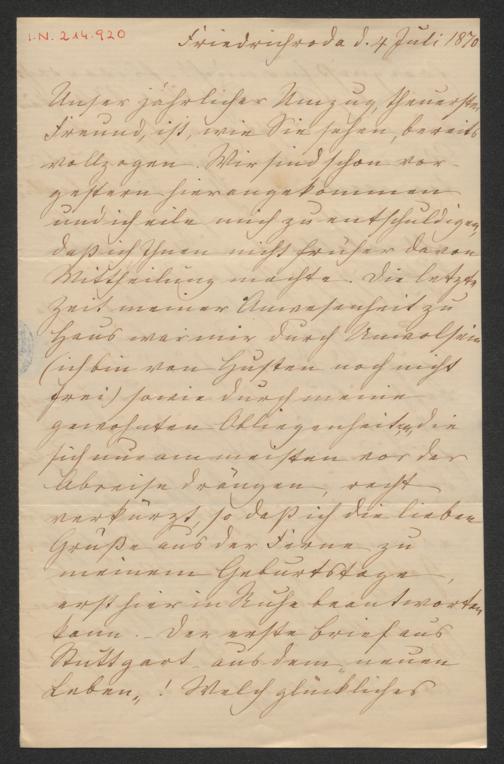 I.N. 214.920
Friedrichroda d. 4 Juli 1870
Unser jährlicher Umzug, theuerster
Freund, ist, wie Sie sehen, bereits
vollzogen. Wir sind schon vor-
gestern hier angekommen
und ich eile mich zu entschuldigen
daß ich Ihnen nicht früher davon
Mittheilung machte. Die letzte
Zeit meiner Anwesenheit zu
Haus war mir durch Unwolsein
(ich bin von Husten noch nicht
frei) sowie durch meine
gewohnten Obliegenheiten, die
sich nun am meisten vor der
Abreise drängen, recht
verkürzt, so daß ich die lieben
Grüße aus der Ferne zu
meinem Geburtstage,
erst hier in Ruhe beantworten
kann. – Der erste Brief aus
Stuttgart aus dem „neuen
Leben„! Welch glückliches